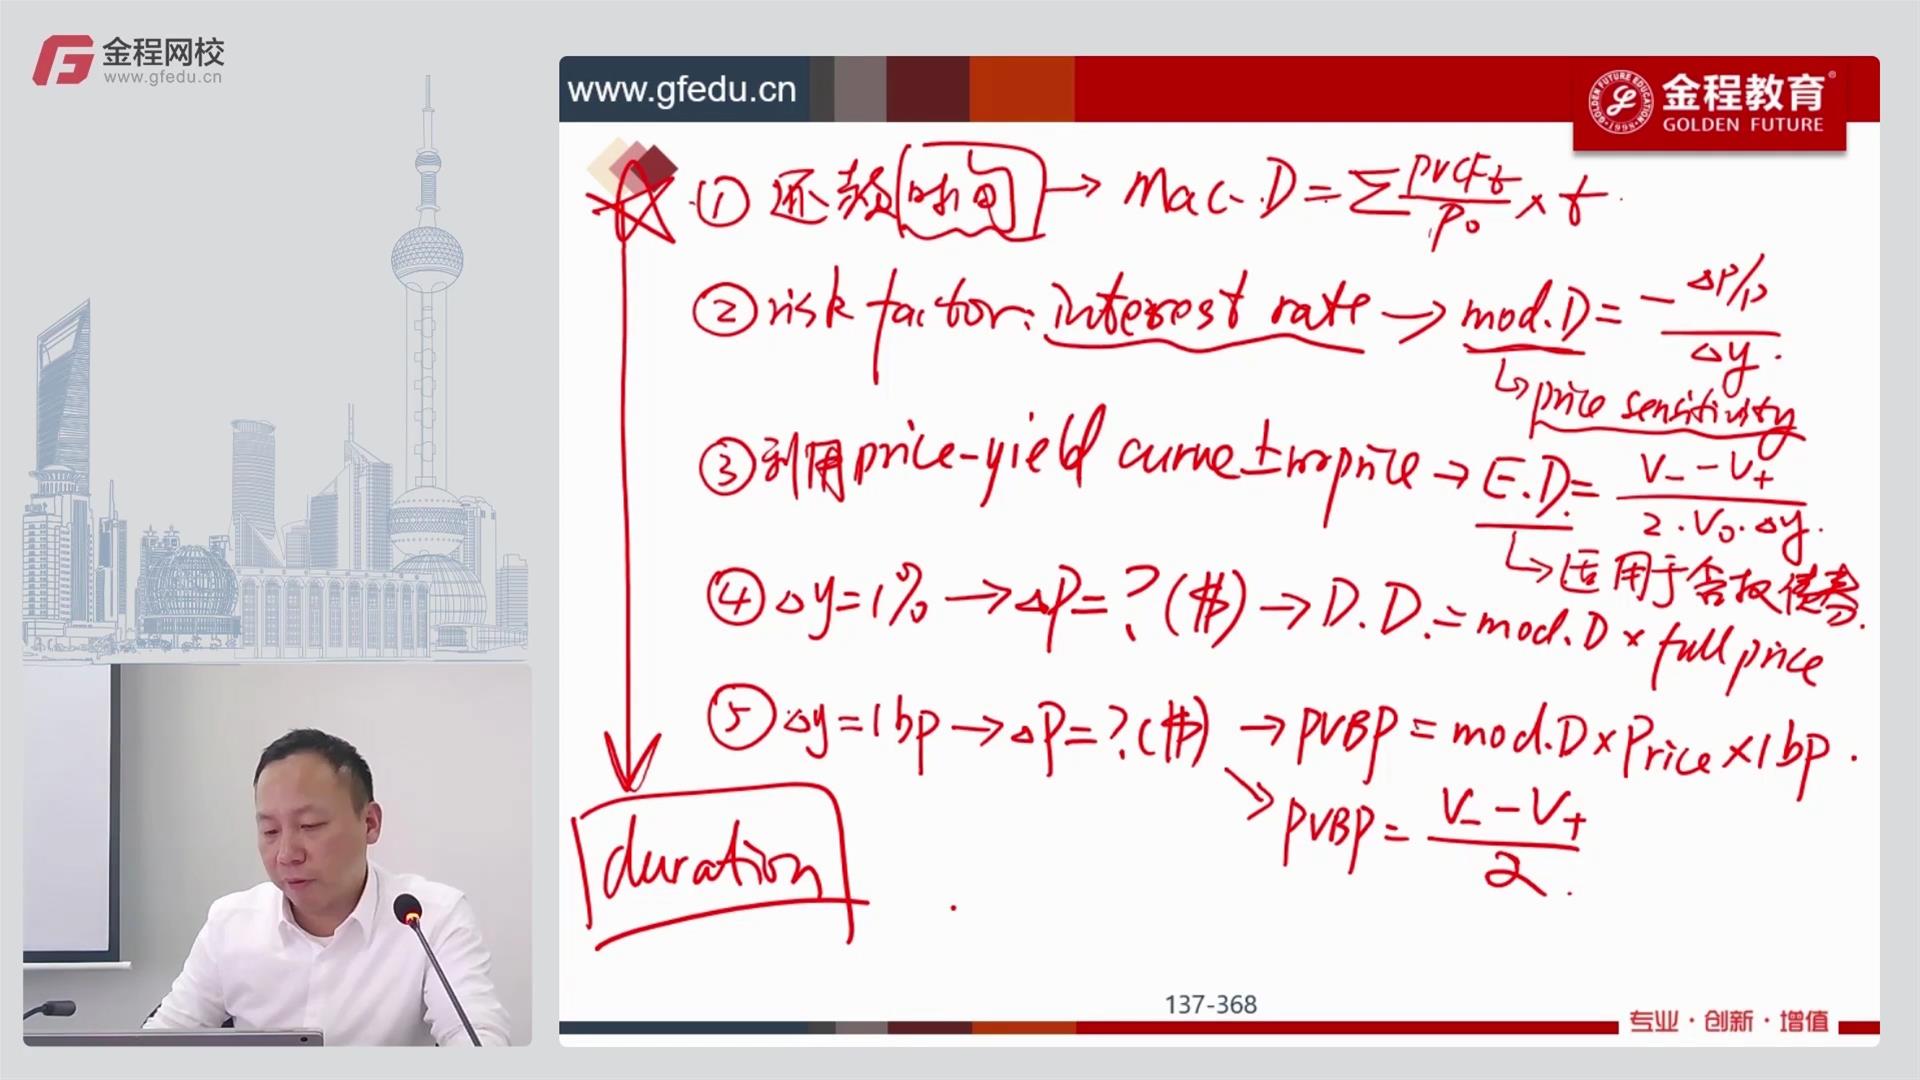 金程网校
www.gfedu.cn
www.gfedu.cn
金程教育®
GOLDEN FUTURE
GOLDEN FUTURE EDUCATION
·1998·
① 还款时间 → Mac.D = Σ PVCFt/P0 × t
② risk factor: interest rate → mod.D = - ΔP/P / Δy.
↳ price sensitivity
③ 利用 price-yield curve 上 price → E.D. = V- - V+ / 2·V0·Δy.
↳ 适用于含权债券.
④ Δy=1% → ΔP=?($) → D.D. = mod.D × full price
⑤ Δy=1bp → ΔP=?($) → PVBP = mod.D × Price × 1bp.
↘ PVBP = V- - V+ / 2.
duration
137-368
专业·创新·增值